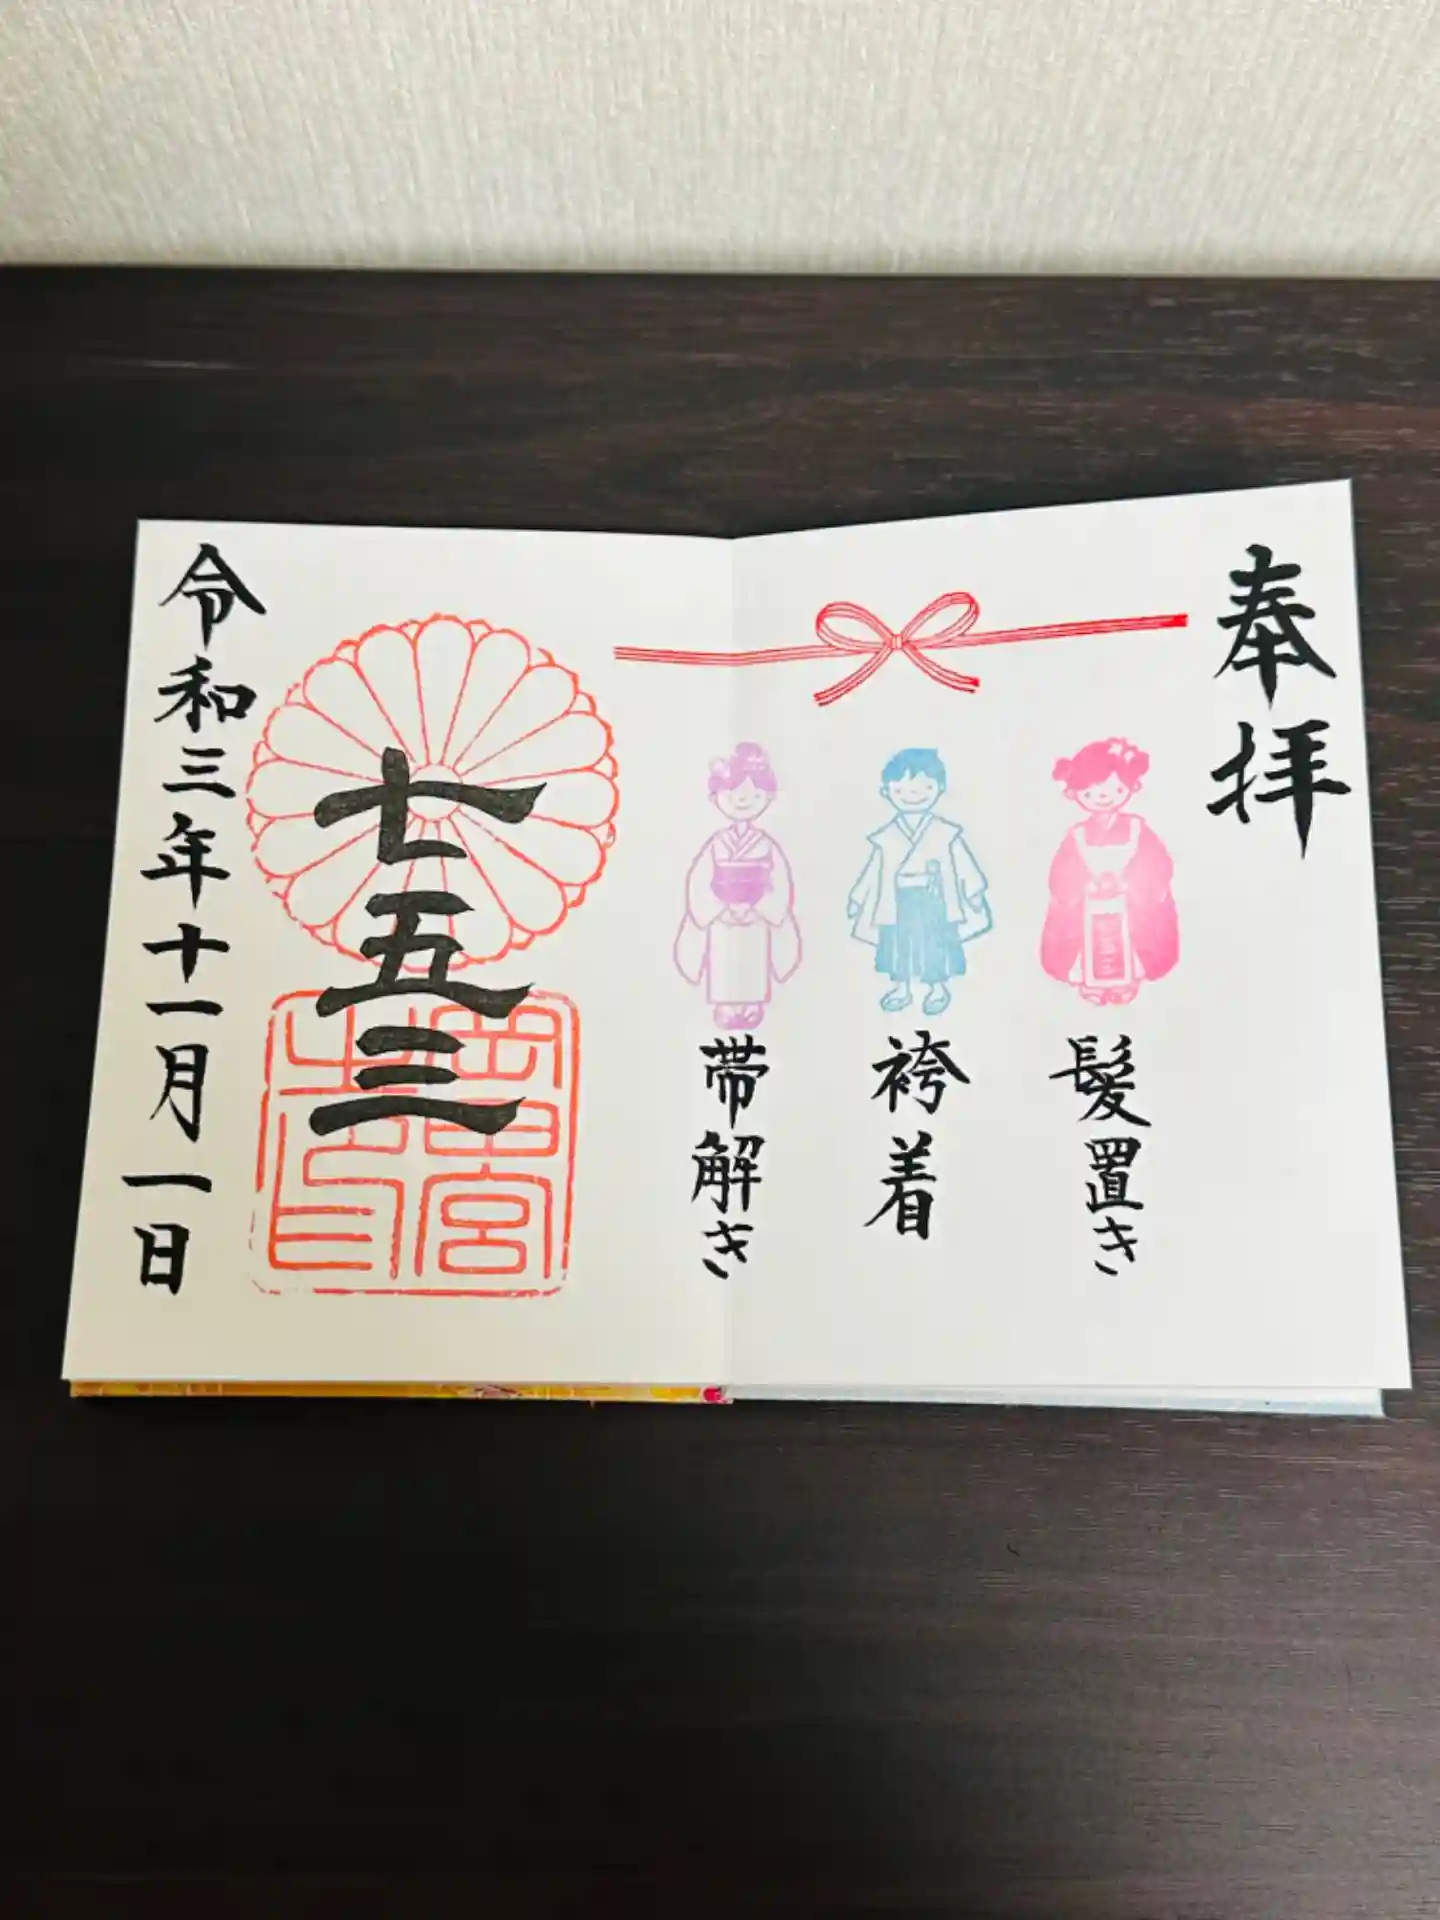 奉拝
髪置き
袴着
帯解き
七五三
岡田宮之印
令和三年十一月一日